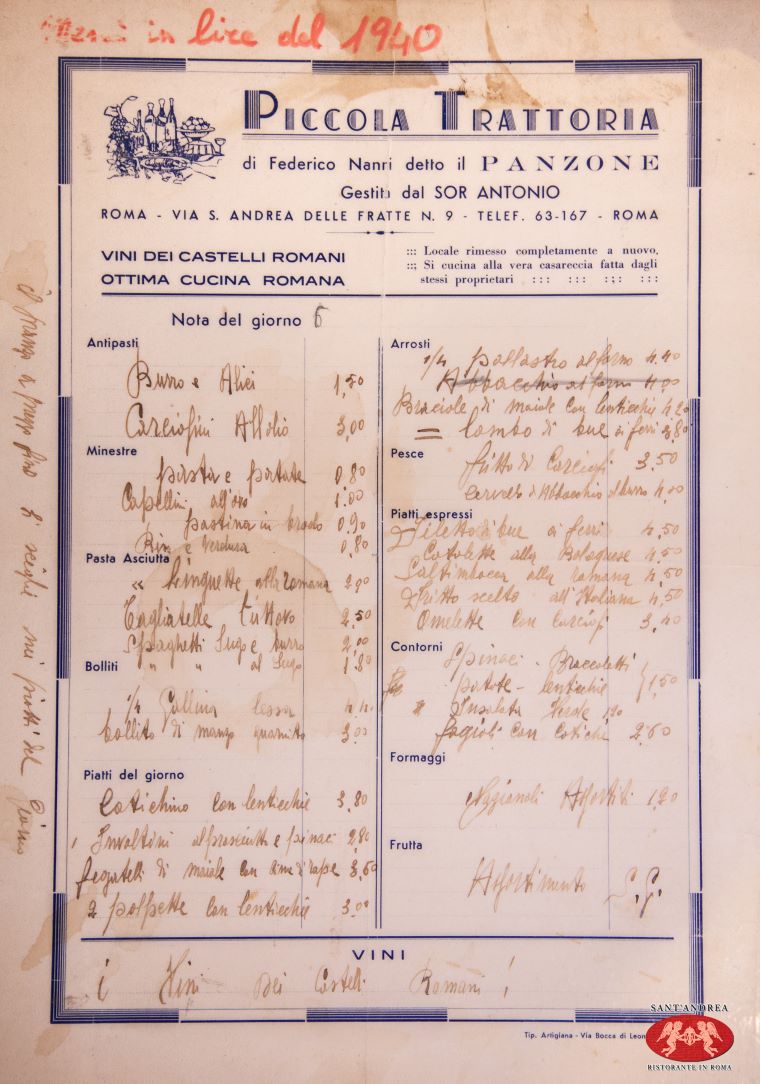 in lire del 1940
PICCOLA TRATTORIA
di Federico Nanri detto il PANZONE
Gestita dal SOR ANTONIO
ROMA - VIA S. ANDREA DELLE FRATTE N. 9 - TELEF. 63-167 - ROMA
VINI DEI CASTELLI ROMANI
OTTIMA CUCINA ROMANA
::: Locale rimesso completamente a nuovo.
::: Si cucina alla vera casareccia fatta dagli
stessi proprietari ::: ::: ::: :::
Nota del giorno 6
Antipasti
Burro e Alici 1,50
Carciofini All'olio 3,00
Minestre
pasta e patate 0,80
Capellini all'ovo 1.00
pastina in brodo 0,90
Risi e Verdura 0,80
Pasta Asciutta
" Linguette alla romana 2,00
Tagliatelle 2,50
Spaghetti Sugo e burro 2,00
" " al Sugo 1.80
Bolliti
1/4 Gallina lessa
bollito di manzo guarnito 3,00
Piatti del giorno
Cotichino con lenticchie 3,80
Involtini al prosciutto e spinaci 2,80
fegatelli di maiale con cime di rape 3,60
2 polpette con lenticchie 3,00
Arrosti
1/4 pollastro al forno 4,40
Abbacchio al forno 4,00
Braciole di maiale con lenticchie 4,20
= lombo di bue ai ferri 3,80
Pesce
fritto di Carciofi 3,50
cervello d'Abbacchio al burro 4,00
Piatti espressi
Filetto di bue ai ferri 4,50
Cotolette alla Bolognese 4,50
Saltimbocca alla romana 4,50
Fritto scelto all'Italiana 4,50
Omelette con Carciofi 3,40
Contorni
Spinaci - Broccoletti
patate - lenticchie 1,50
" Insalata Verde 1,20
fagioli con cotiche 2,60
Formaggi
Nazionali Assortiti 1,20
Frutta
Assortimento S.G.
VINI
i Vini Dei Castelli Romani !
Il pranzo a prezzo fisso si sceglie nei piatti del Giorno
Tip. Artigiana - Via Bocca di Leon
SANT'ANDREA
RISTORANTE IN ROMA